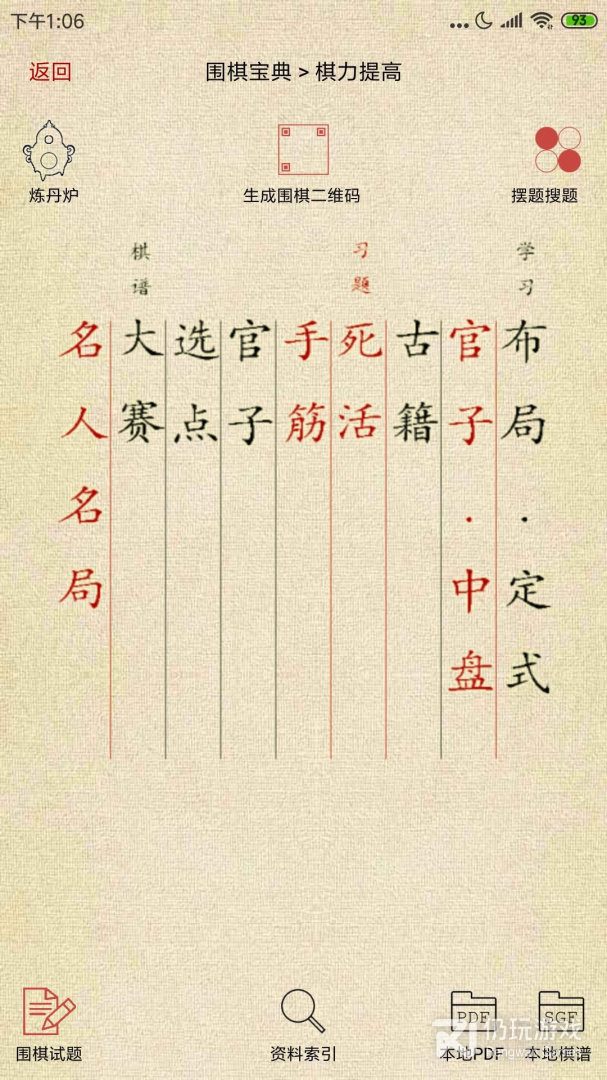 下午1:06
93
返回
围棋宝典 > 棋力提高
炼丹炉
生成围棋二维码
摆题搜题
学习
习题
棋谱
布局·定式
官子·中盘
古籍
死活
手筋
官子
选点
大赛
名人名局
围棋试题
资料索引
PDF
本地PDF
SGF
本地棋谱
仍玩游戏